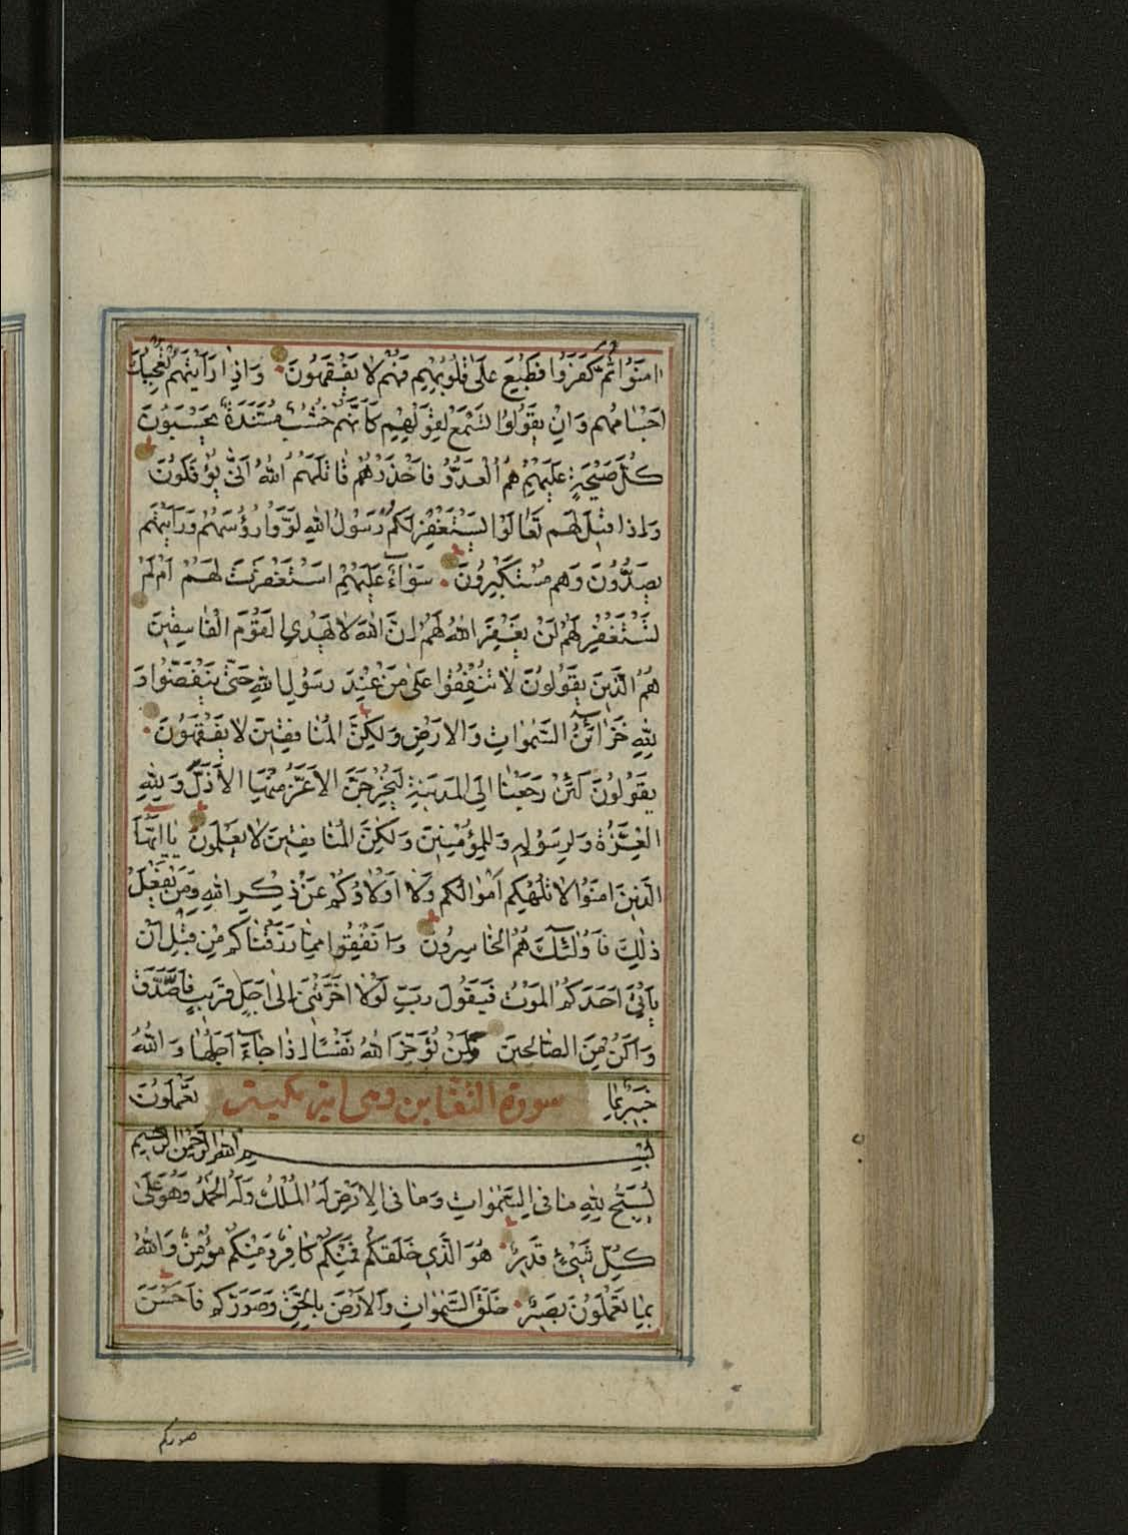 اٰمَنُوا ثُمَّ كَفَرُوا فَطُبِعَ عَلٰى قُلُوبِهِمْ فَهُمْ لَا يَفْقَهُونَ وَاِذَا رَاَيْتَهُمْ تُعْجِبُكَ
اَجْسَامُهُمْ وَاِنْ يَقُولُوا تَسْمَعْ لِقَوْلِهِمْ كَاَنَّهُمْ خُشُبٌ مُسَنَّدَةٌ يَحْسَبُونَ
كُلَّ صَيْحَةٍ عَلَيْهِمْ هُمُ الْعَدُوُّ فَاحْذَرْهُمْ قَاتَلَهُمُ اللّٰهُ اَنّٰى يُؤْفَكُونَ
وَاِذَا قِيلَ لَهُمْ تَعَالَوْا يَسْتَغْفِرْ لَكُمْ رَسُولُ اللّٰهِ لَوَّوْا رُؤُسَهُمْ وَرَاَيْتَهُمْ
يَصُدُّونَ وَهُمْ مُسْتَكْبِرُونَ سَوَاءٌ عَلَيْهِمْ اَسْتَغْفَرْتَ لَهُمْ اَمْ لَمْ
تَسْتَغْفِرْ لَهُمْ لَنْ يَغْفِرَ اللّٰهُ لَهُمْ اِنَّ اللّٰهَ لَا يَهْدِي الْقَوْمَ الْفَاسِقِينَ
هُمُ الَّذِينَ يَقُولُونَ لَا تُنْفِقُوا عَلٰى مَنْ عِنْدَ رَسُولِ اللّٰهِ حَتّٰى يَنْفَضُّوا وَ
لِلّٰهِ خَزَائِنُ السَّمٰوَاتِ وَالْاَرْضِ وَلٰكِنَّ الْمُنَافِقِينَ لَا يَفْقَهُونَ
يَقُولُونَ لَئِنْ رَجَعْنَا اِلَى الْمَدِينَةِ لَيُخْرِجَنَّ الْاَعَزُّ مِنْهَا الْاَذَلَّ وَلِلّٰهِ
الْعِزَّةُ وَلِرَسُولِهِ وَلِلْمُؤْمِنِينَ وَلٰكِنَّ الْمُنَافِقِينَ لَا يَعْلَمُونَ يَا اَيُّهَا
الَّذِينَ اٰمَنُوا لَا تُلْهِكُمْ اَمْوَالُكُمْ وَلَا اَوْلَادُكُمْ عَنْ ذِكْرِ اللّٰهِ وَمَنْ يَفْعَلْ
ذٰلِكَ فَاُولٰئِكَ هُمُ الْخَاسِرُونَ وَاَنْفِقُوا مِمَّا رَزَقْنَاكُمْ مِنْ قَبْلِ اَنْ
يَاْتِيَ اَحَدَكُمُ الْمَوْتُ فَيَقُولَ رَبِّ لَوْلَا اَخَّرْتَنِي اِلٰى اَجَلٍ قَرِيبٍ فَاَصَّدَّقَ
وَاَكُنْ مِنَ الصَّالِحِينَ وَلَنْ يُؤَخِّرَ اللّٰهُ نَفْسًا اِذَا جَاءَ اَجَلُهَا وَاللّٰهُ
خَبِيرٌ بِمَا سورة التغابن وهى اية مكية تَعْمَلُونَ
بِسْمِ اللّٰهِ الرَّحْمٰنِ الرَّحِيمِ
يُسَبِّحُ لِلّٰهِ مَا فِي السَّمٰوَاتِ وَمَا فِي الْاَرْضِ لَهُ الْمُلْكُ وَلَهُ الْحَمْدُ وَهُوَ عَلٰى
كُلِّ شَيْءٍ قَدِيرٌ هُوَ الَّذِي خَلَقَكُمْ فَمِنْكُمْ كَافِرٌ وَمِنْكُمْ مُؤْمِنٌ وَاللّٰهُ
بِمَا تَعْمَلُونَ بَصِيرٌ خَلَقَ السَّمٰوَاتِ وَالْاَرْضَ بِالْحَقِّ وَصَوَّرَكُمْ فَاَحْسَنَ
صوركم